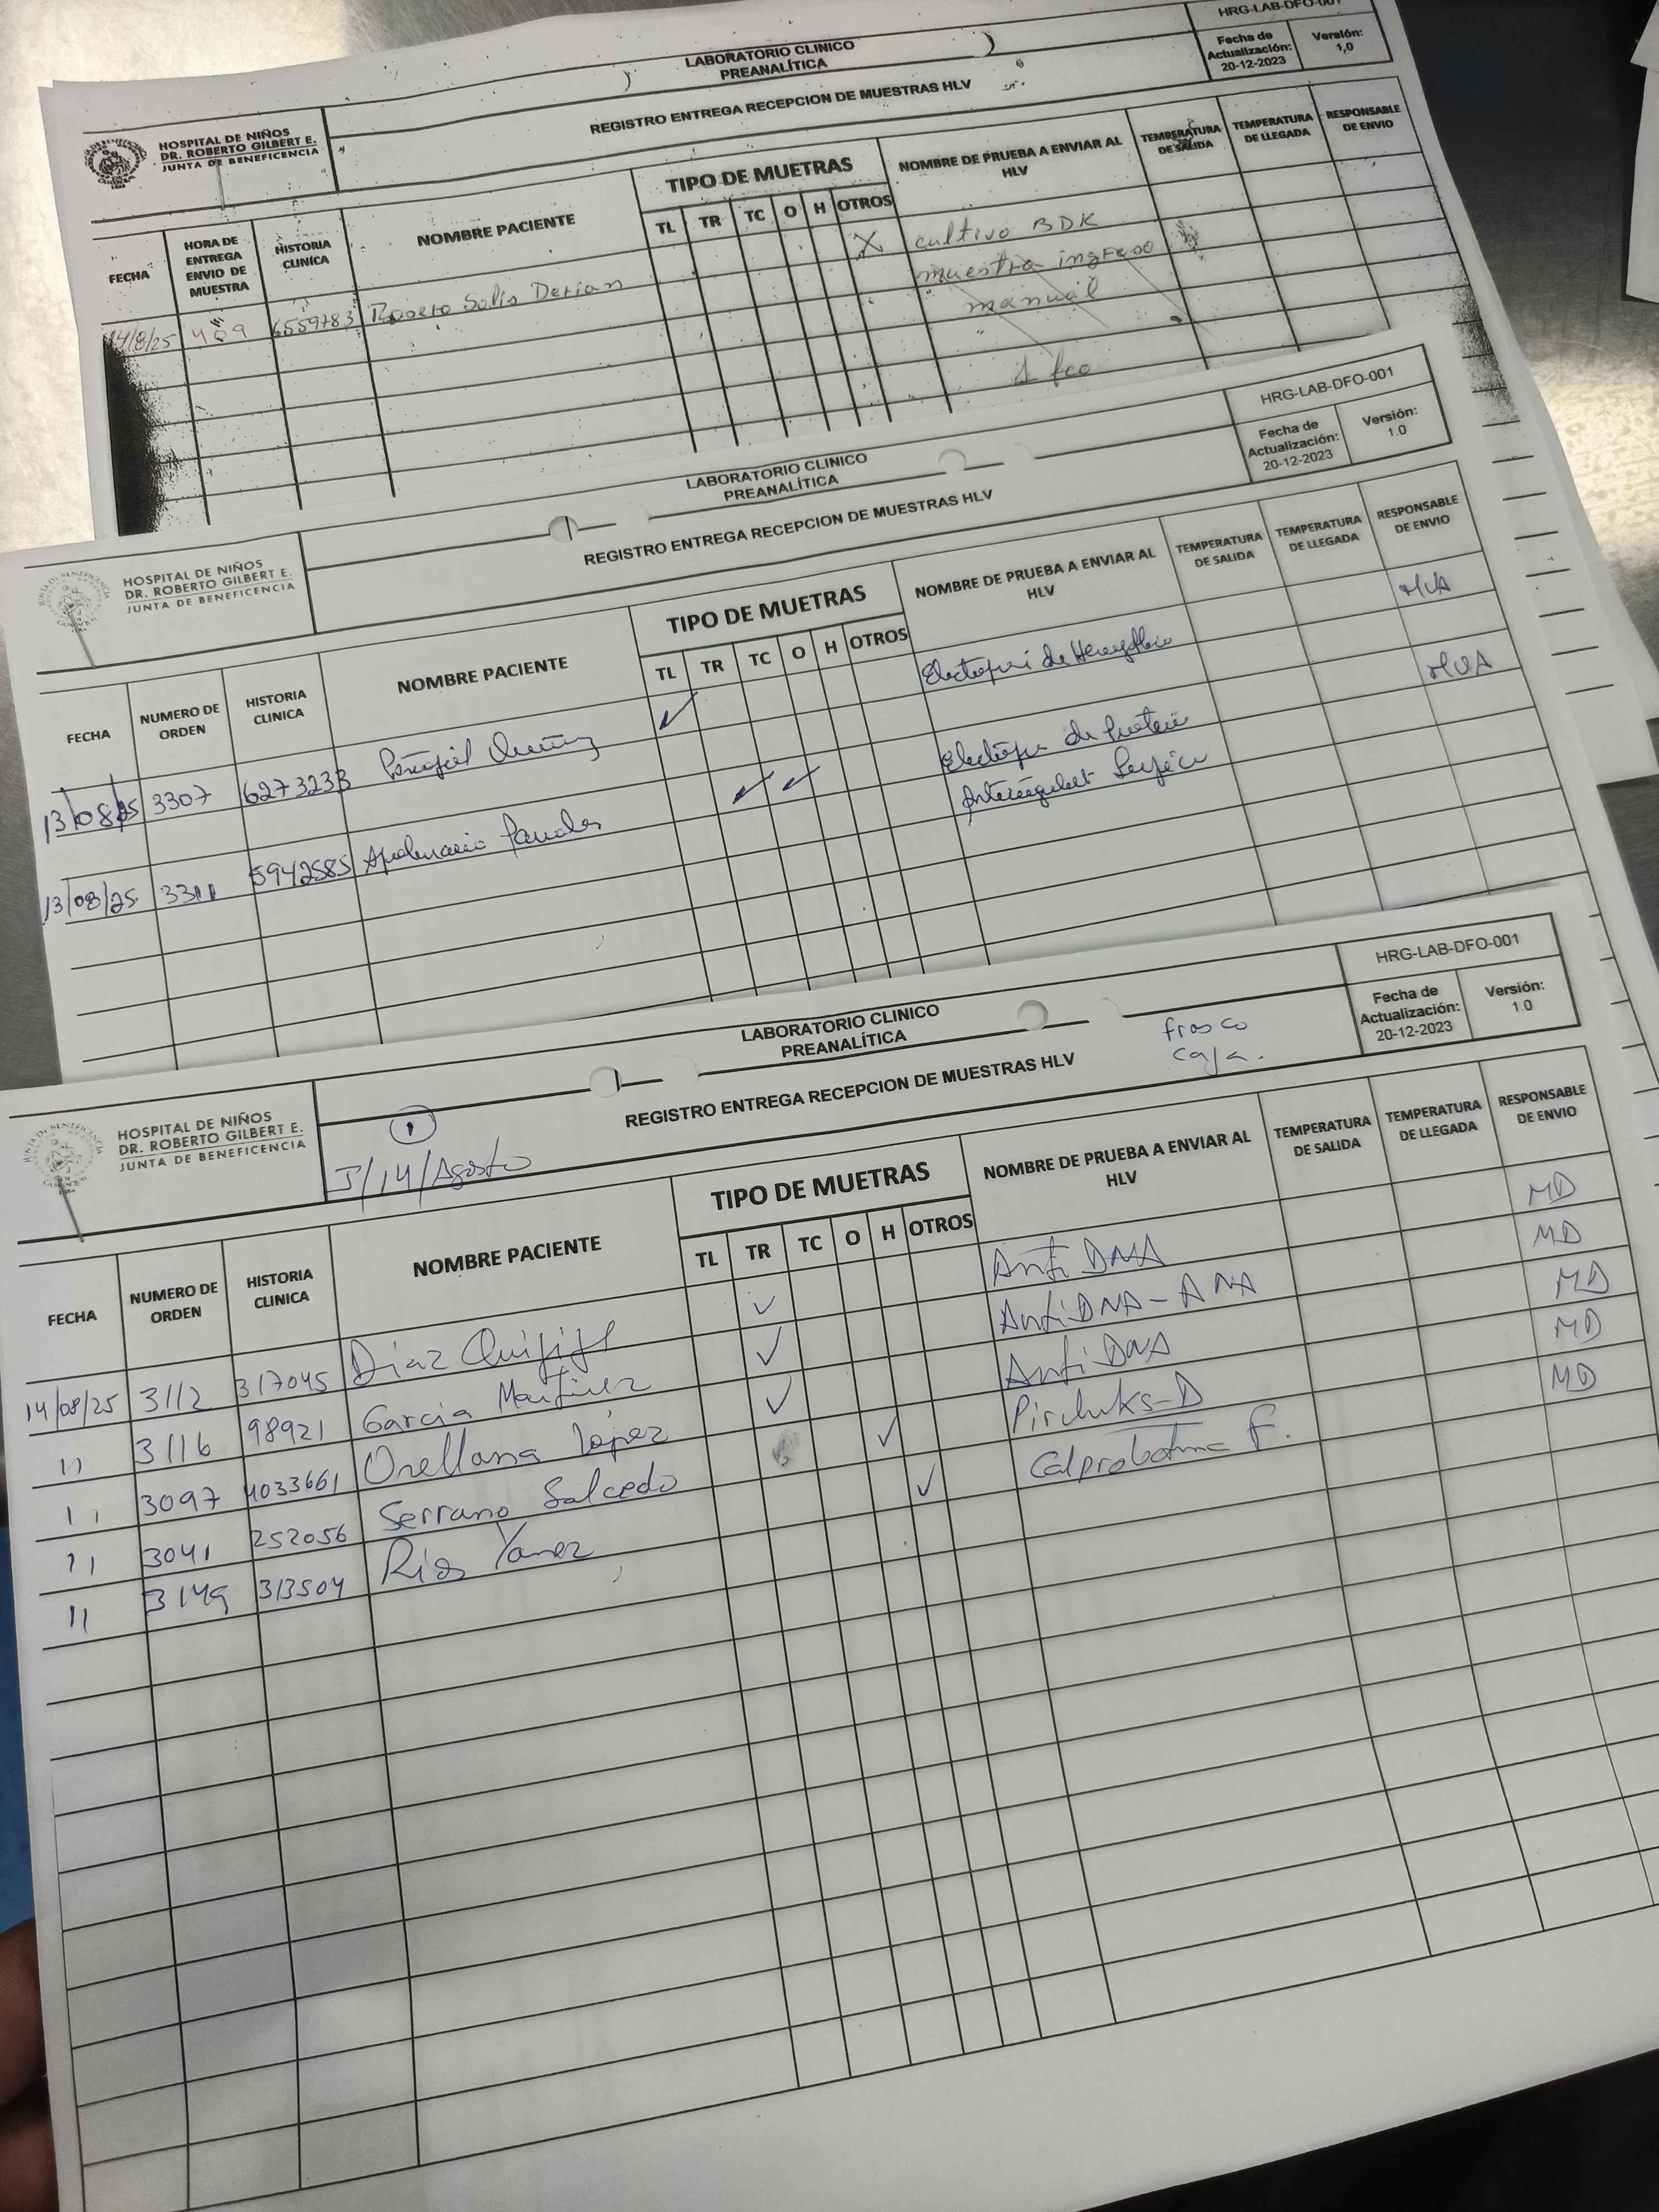 HRG-LAB-DFO-001
LABORATORIO CLINICO
PREANALÍTICA
Fecha de Actualización: 20-12-2023
Versión: 1,0
HOSPITAL DE NIÑOS
DR. ROBERTO GILBERT E.
JUNTA DE BENEFICENCIA
REGISTRO ENTREGA RECEPCION DE MUESTRAS HLV
FECHA
HORA DE ENTREGA ENVIO DE MUESTRA
HISTORIA CLINICA
NOMBRE PACIENTE
TIPO DE MUETRAS
TL TR TC O H OTROS
NOMBRE DE PRUEBA A ENVIAR AL HLV
TEMPERATURA DE SALIDA
TEMPERATURA DE LLEGADA
RESPONSABLE DE ENVIO
14/8/25 6559783 Rosero Solis Derian X cultivo BDK
muestra ingreso
manual
1 fco
HRG-LAB-DFO-001
LABORATORIO CLINICO
PREANALÍTICA
Fecha de Actualización: 20-12-2023
Versión: 1.0
HOSPITAL DE NIÑOS
DR. ROBERTO GILBERT E.
JUNTA DE BENEFICENCIA
REGISTRO ENTREGA RECEPCION DE MUESTRAS HLV
FECHA
NUMERO DE ORDEN
HISTORIA CLINICA
NOMBRE PACIENTE
TIPO DE MUETRAS
TL TR TC O H OTROS
NOMBRE DE PRUEBA A ENVIAR AL HLV
TEMPERATURA DE SALIDA
TEMPERATURA DE LLEGADA
RESPONSABLE DE ENVIO
13/08/25 3307 6273233 ✓ de
13/08/25 3311 5942585 ✓ ✓ de
HRG-LAB-DFO-001
LABORATORIO CLINICO
PREANALÍTICA
frasco
caja.
Fecha de Actualización: 20-12-2023
Versión: 1.0
HOSPITAL DE NIÑOS
DR. ROBERTO GILBERT E.
JUNTA DE BENEFICENCIA
1
J/14/Agosto
REGISTRO ENTREGA RECEPCION DE MUESTRAS HLV
FECHA
NUMERO DE ORDEN
HISTORIA CLINICA
NOMBRE PACIENTE
TIPO DE MUETRAS
TL TR TC O H OTROS
NOMBRE DE PRUEBA A ENVIAR AL HLV
TEMPERATURA DE SALIDA
TEMPERATURA DE LLEGADA
RESPONSABLE DE ENVIO
14/08/25 3112 317045 Diaz ✓ Anti DNA MD
11 3116 98921 Garcia Martinez ✓ Anti DNA - ANA MD
11 3097 4033661 Orellana López ✓ Anti DNA MD
11 3041 252056 Serrano Salcedo ✓ MD
11 3149 313504 Rios Yanez ✓ F. MD